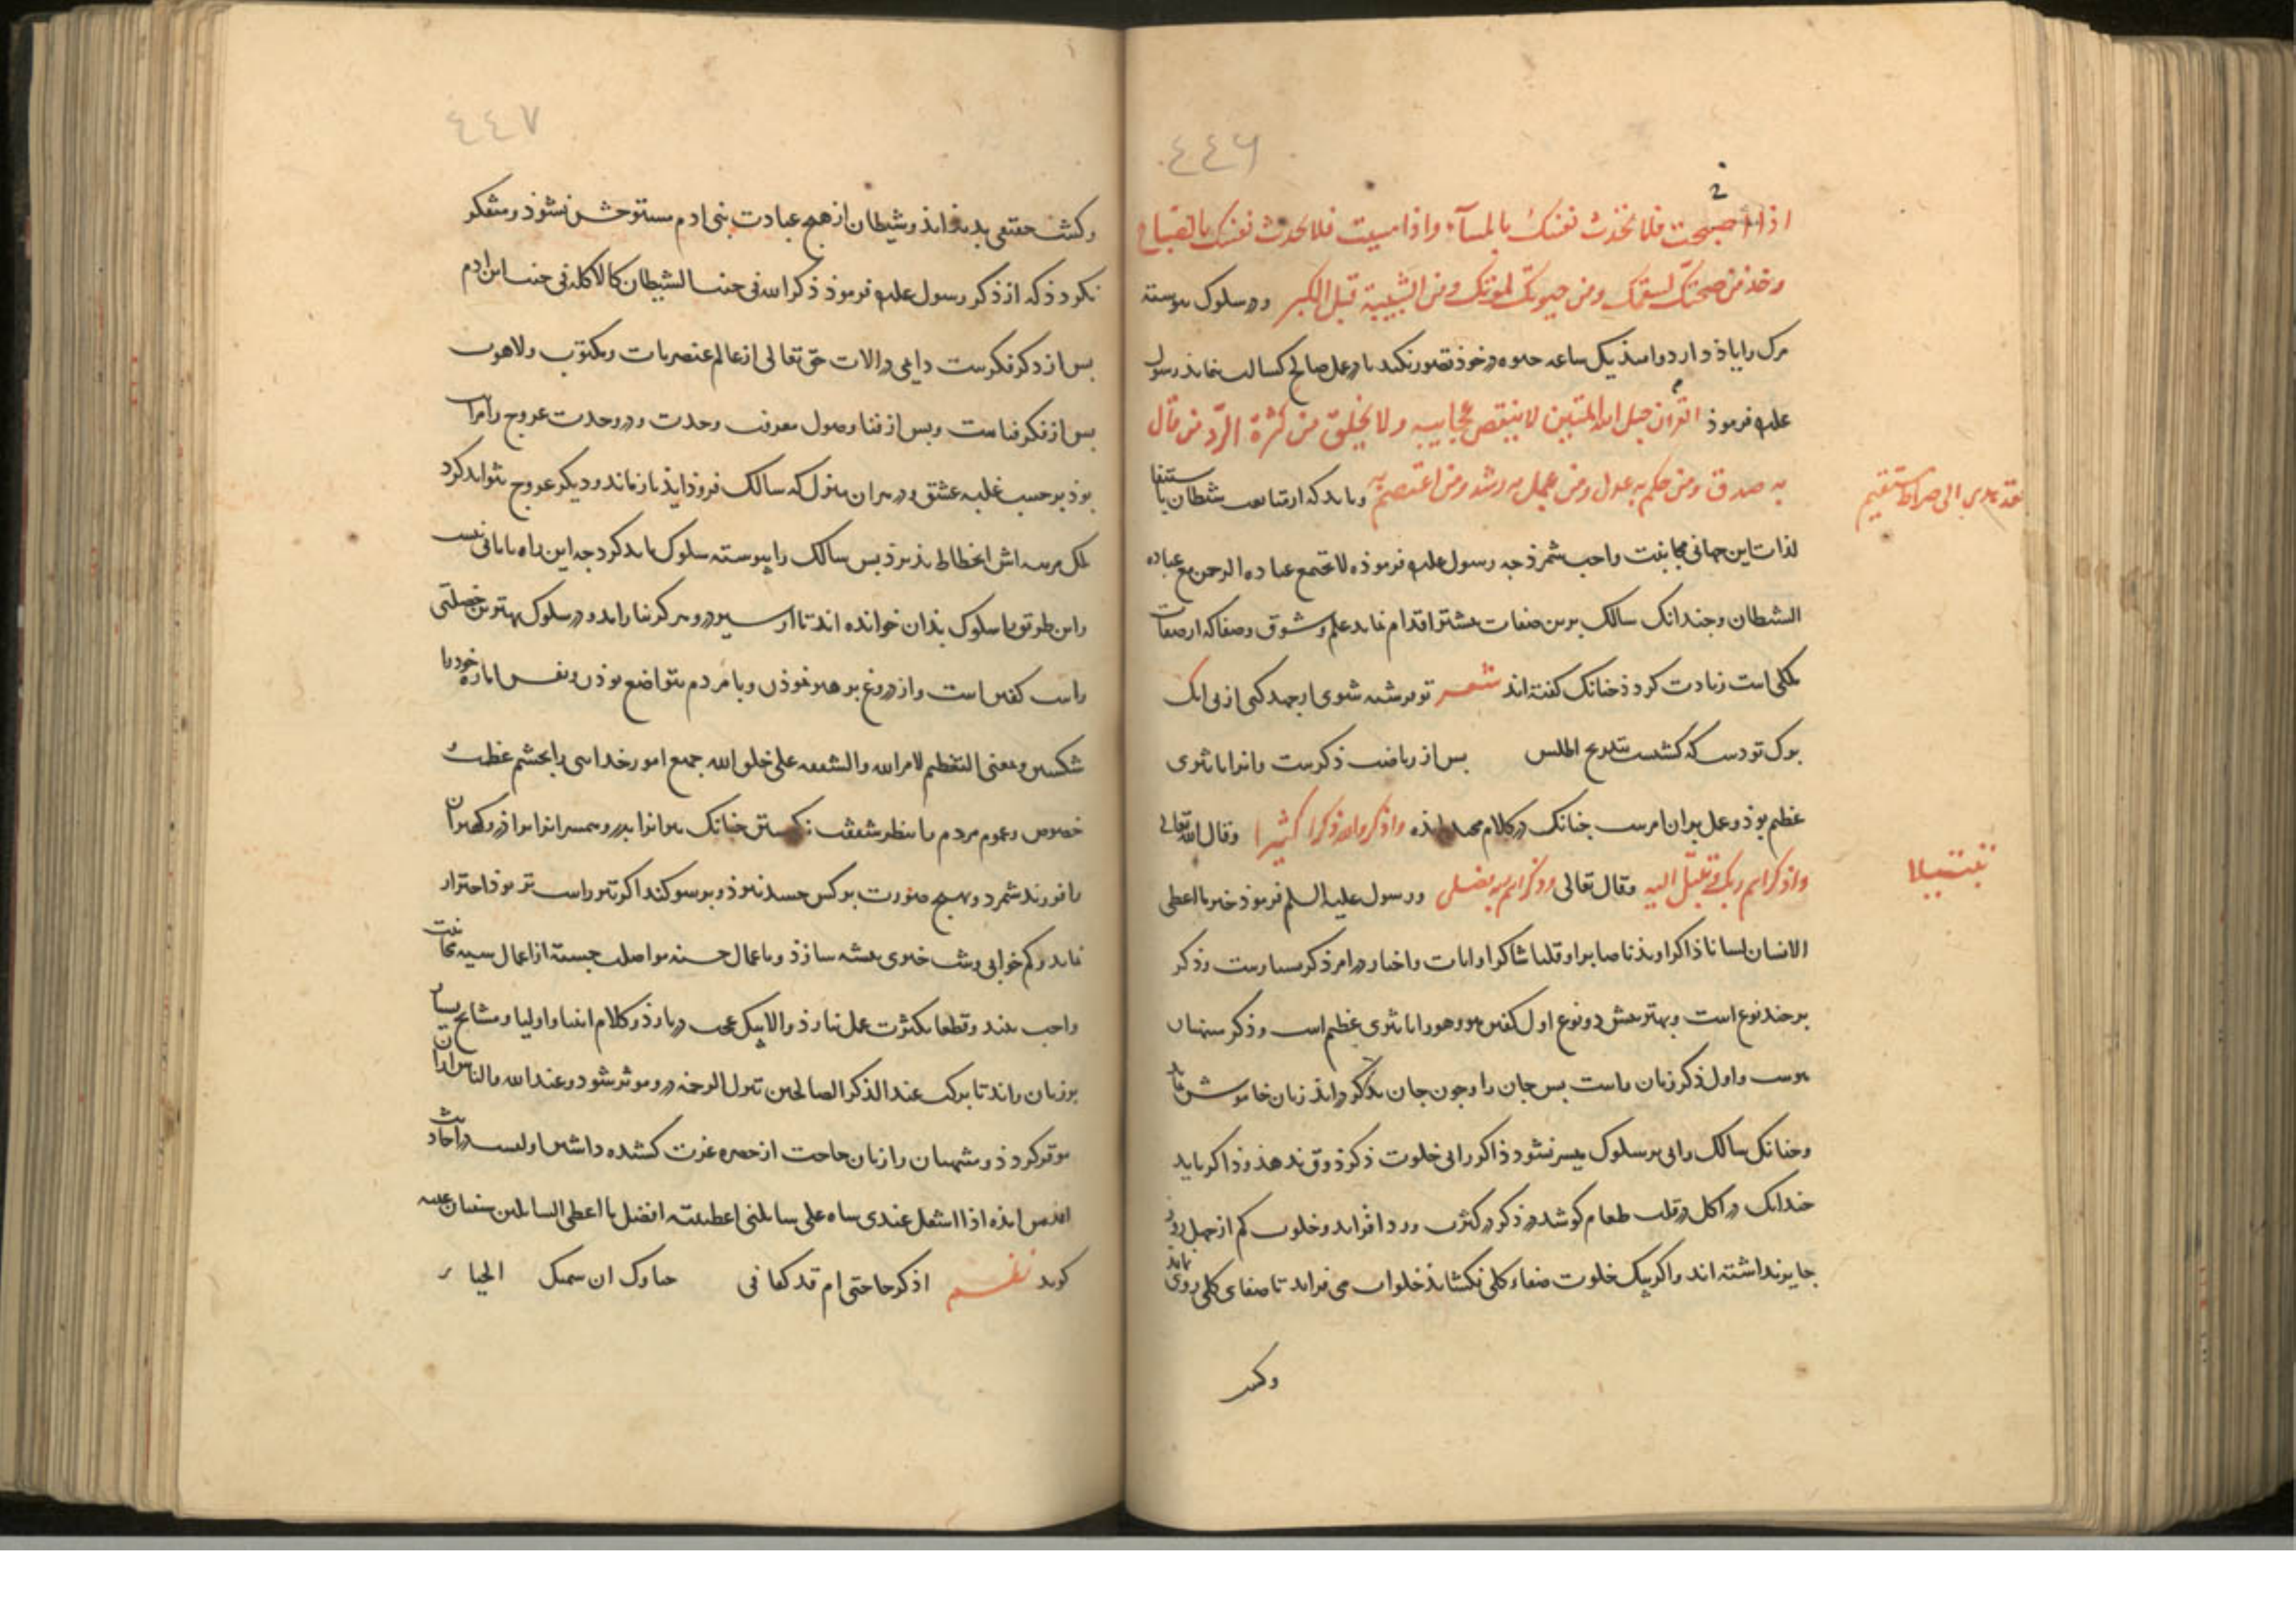 ٤٤٦
اذا اصبحت فلا تحدث نفسك بالمسآء واذا امسیت فلا تحدث نفسك بالصباح
وخذ من صحتك لسقمك ومن حیوتك لموتك ومن الشبیبة قبل الکبر ودر سلوک پیوسته
مرک را یاذ دارد و امید یک ساعه حیوه در خود تصور نکند تا در عمل صالح کسالت نماید رسول
علیه فرموذ القرآن حبل الله المتین لا ینقص عجایبه ولا یخلق من کثرة الرد من قال
به صدق ومن حکم به عدل ومن عمل به رشد ومن اعتصم به وباید که از متابعت شیطان با
فقد هدی الی صراط مستقیم
لذات این جهانی مجانبت واجب شمرذ جه رسول علیه فرموذه لا تجتمع عباده الرحمن مع عباده
الشیطان وچندانک سالک برین صفات بیشتر اقدام نماید علم و شوق وصفا که از صفات
ملکی است زیادت کردد چنانک کفته اند شعر تو فرشته شوی ار جهد کنی از پی آنک
برک توتست که کشتست بتدریج اطلس پس از ریاضت ذکرست وانرا تاثیری
عظیم بوذ وعمل بران امرست چنانک در کلام مجید امذه واذکروا الله ذکرا کثیرا وقال الله تعالی
واذکر اسم ربک وتبتل الیه وقال تعالی وذکر اسم ربه فصلی ورسول علیه السلم فرموذ خیر ما اعطی
تبتیلا
الانسان لسانا ذاکرا وبدنا صابرا وقلبا شاکرا وایات واخبار در امر ذکر بسیارست وذکر
بر چند نوع است وبهترینش دو نوع اول کفتن هو وهو را تاثیری عظیم است وذکر
واول ذکر زبان راست پس جان را وجون جان بذکر درآید زبان خاموش
وچنانک سالک را بی پیر سلوک میسر نشود ذاکر را بی خلوت ذکر ذوق ندهذ وذاکر باید
چندانک در اکل در قلت طعام کوشد در ذکر در کثرت ورد افزاید وخلوت کم از چهل روز
جایز نداشته اند واکر بیک خلوت صفاء کلی نکشاید خلوات می فزاید تا صفای کلی روی
وکشف
٤٤٧
وکشف حقیقی بدید اید وشیطان از هیچ عبادت بنی ادم مستوحش نشوذ ومتفکر
نکردد که از ذکر رسول علیه فرموذ ذکر الله فی جنب الشیطان کالاکله فی جنب ابن ادم
پس از ذکر فکرست دایمی در آلات حق تعالی از عالم عنصریات وملکوت ولاهوت
پس از فکر فناست وپس از فنا وصول معرفت وحدت ودر وحدت عروج را مراتب
بوذ بر حسب غلبه عشق ودر هر ان منزل که سالک فروذ آید باز ماند ودیکر عروج نتواند کرد
بلک مرتبه اش انحطاط پذیرذ پس سالک را پیوسته سلوک باید کرد جه این راه را پایانی نیست
واین طریق را سلوک بذان خوانده اند تا از سیر در وهرکز نیاراید ودر سلوک بهترین خصلتی
راست کفتن است واز دروغ پرهیز نموذن وبا مردم متواضع بوذن ونفس اماره خود را
شکستن وبمعنی التعظیم لامر الله والشفقه علی خلق الله جمیع امور خدایی را بچشم عظمت
خصوص وعموم مردم را بنظر شفقت نکریستن چنانک پیرانرا پدر وهمسرانرا برادر وکهترانرا
فرزند شمرد وبهیچ صورت بر کس حسد نبرذ وبر سوکند اکر چه راست تر بوذ احتراز
نماید وکم خوابی وشب خیزی پیشه سازذ وباعمال حسنه مواصلت جسته از اعمال سیه مجانبت
واجب بیند وقطعا بکثرت عمل ننازذ والا بیک عجب دربازذ وکلام انبیا واولیا ومشایخ بسیار
بر زبان راند تا برکت عند الذکر الصالحین تنزل الرحمه درو موثر شود وعند الله والناس
موقر کردذ ومتهمان را زبان حاجت از حضره عزت کشیده داشتن اولیست در احادیث
امذه اذا اشتغل عندی ثناه علی سایلنی اعطیته افضل ما اعطی السایلین سفیان عیینه
کوید اذکر حاجتی ام قد کفانی حیاوک ان سمیک الحیاء